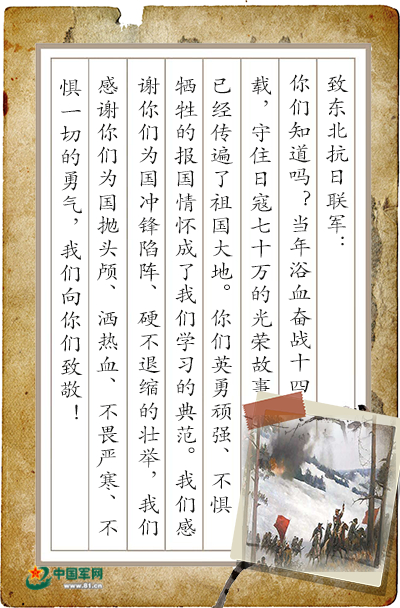 致东北抗日联军：
你们知道吗？当年浴血奋战十四
载，守住日寇七十万的光荣故事
已经传遍了祖国大地。你们英勇顽强、不惧
牺牲的报国情怀成了我们学习的典范。我们感
谢你们为国冲锋陷阵、硬不退缩的壮举，我们
感谢你们为国抛头颅、洒热血、不畏严寒、不
惧一切的勇气，我们向你们致敬！
中国军网
www.81.cn